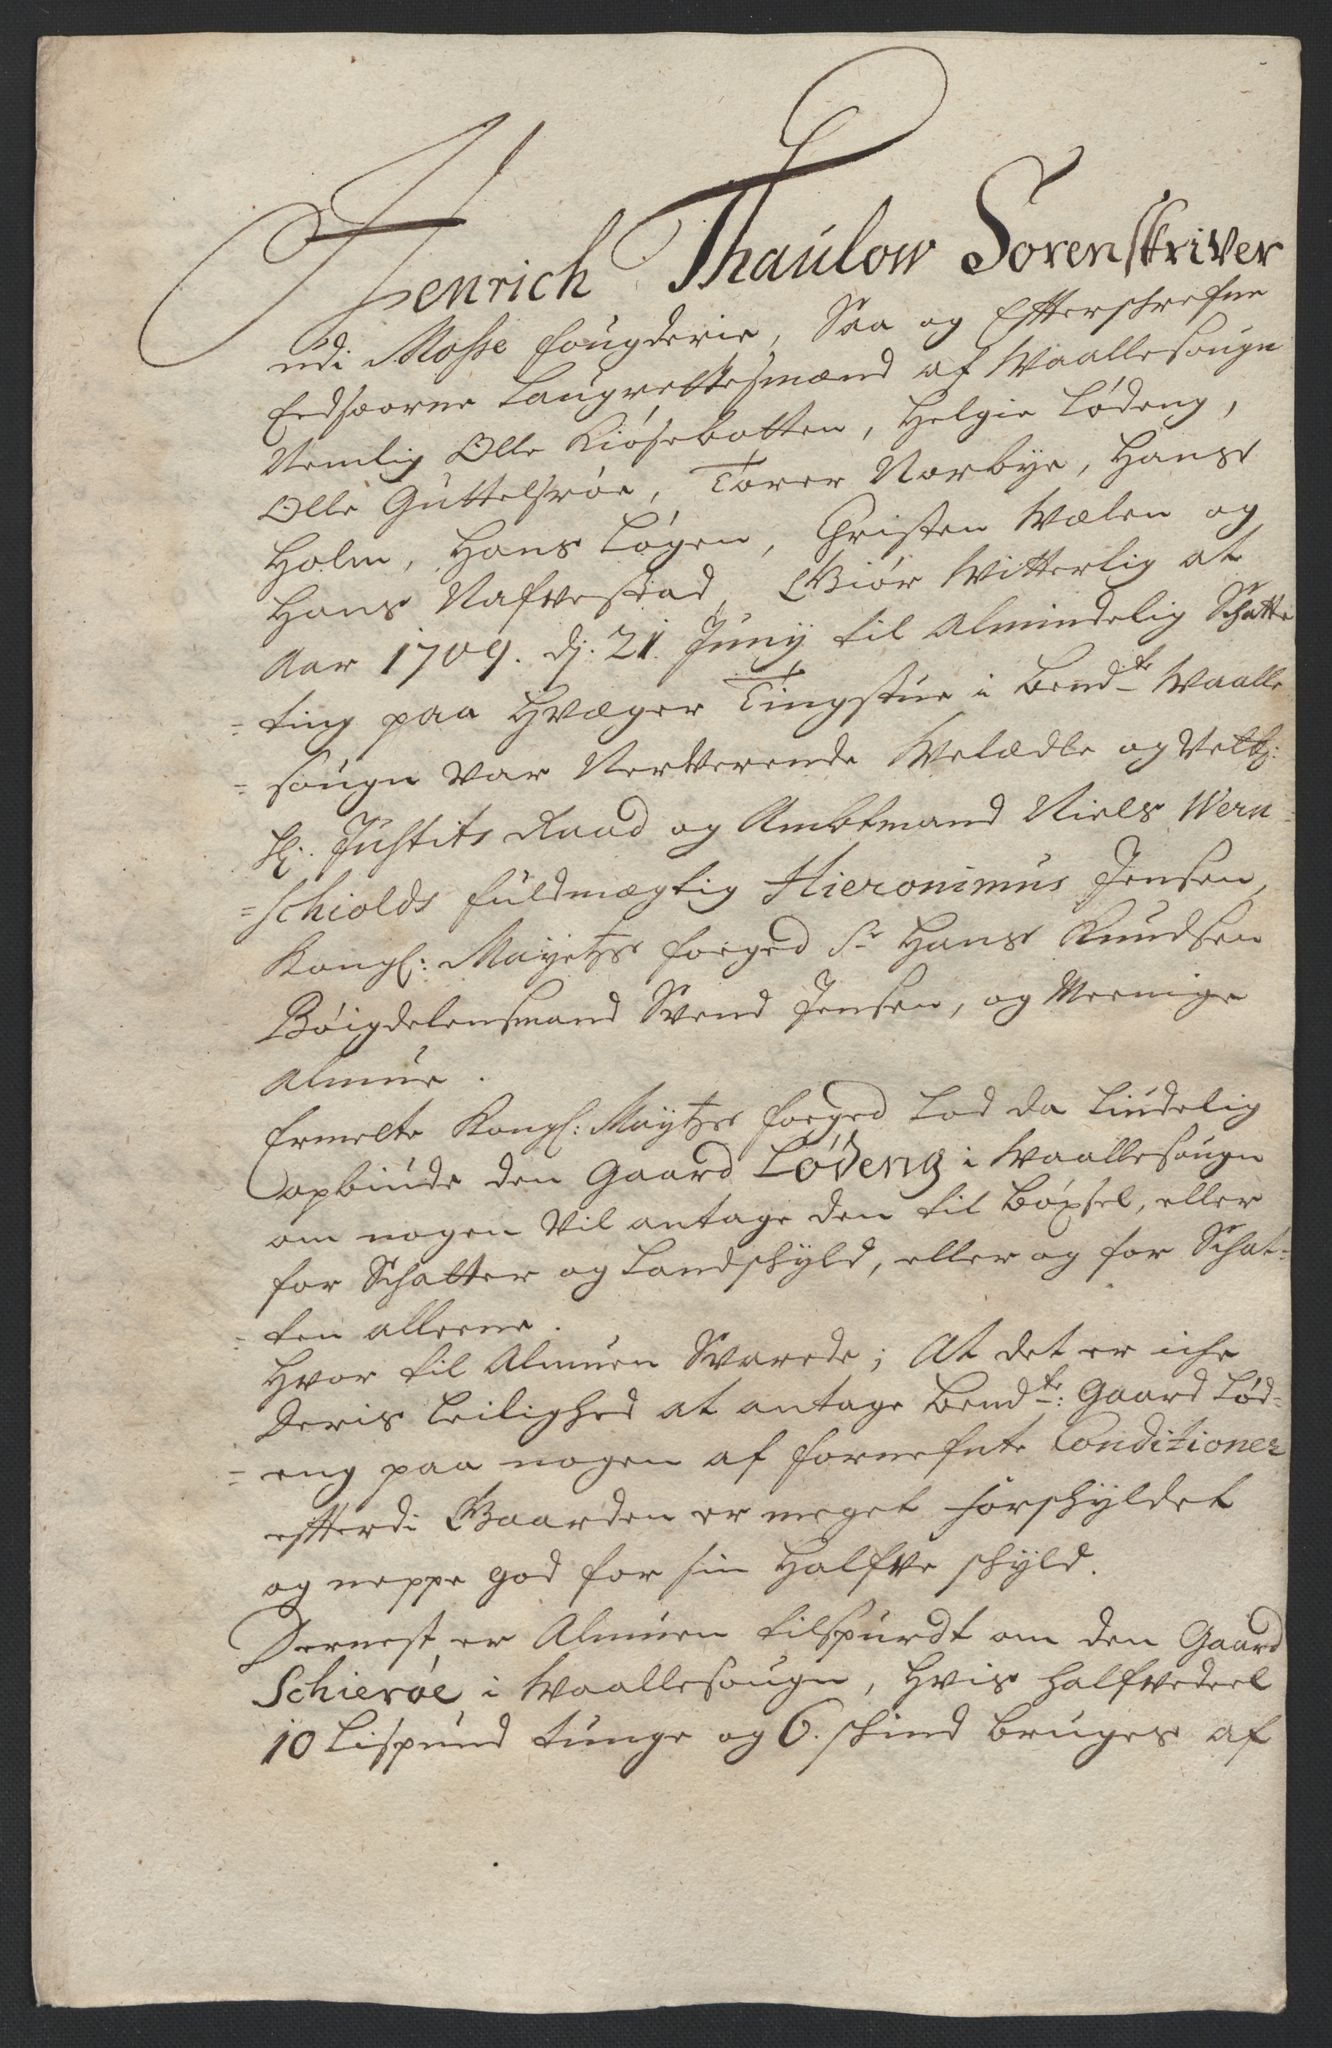 Henrich Thaulow Sorenskriver
udi Mosse fougderie, Saa og Efterschrefne
Eedsvorne Laugrettesmænd af Waallesougn
Nemlig Olle Kiøsebotten, Helgie Lødeng,
Olle Guttelsrøe, Torer Norbye, Hans
Holm, Hans Løgen, Christen Wælen og
Hans Nafvestad, Giør Witterlig at
Aar 1709. dj: 21. Junij til Almindelig Schatte
= ting paa Hvæger Tingstue i bemdte Waalle
= sougn var Nerverende Welædle og Velb:
Hr: Justits Raad og Ambtmand Niels Wern=
= schiolds fuldmægtig Hieronimus Jensen,
Kongl: Mayetzs foeged Sr Hans Knudsen
Bøigdelensmand Svend Jensen, og Meenige
Almue.
Ermelte Kongl: Maytzs foeged Lod da Liudelig
opbiude den Gaard Lødeng i Waallesougn
om nogen Vil antage den til Bøxsel, eller
for Schatter og Landschyld, eller og for Schat=
= ten alleene.
Hvor til Almuen Svarede; At det er iche
Deris Leilighed at antage bemdte: Gaard Lød=
= eng paa nogen af fornefnte Conditioner
efterdi Gaarden er meget forschyldet
og neppe god for sin Halfve schyld.
Dernest er Almuen tilspurdt om den Gaard
Schierøe i Waallesougn, Hvis halfvedeel
10 Lispund tunge og 6. schind bruges af